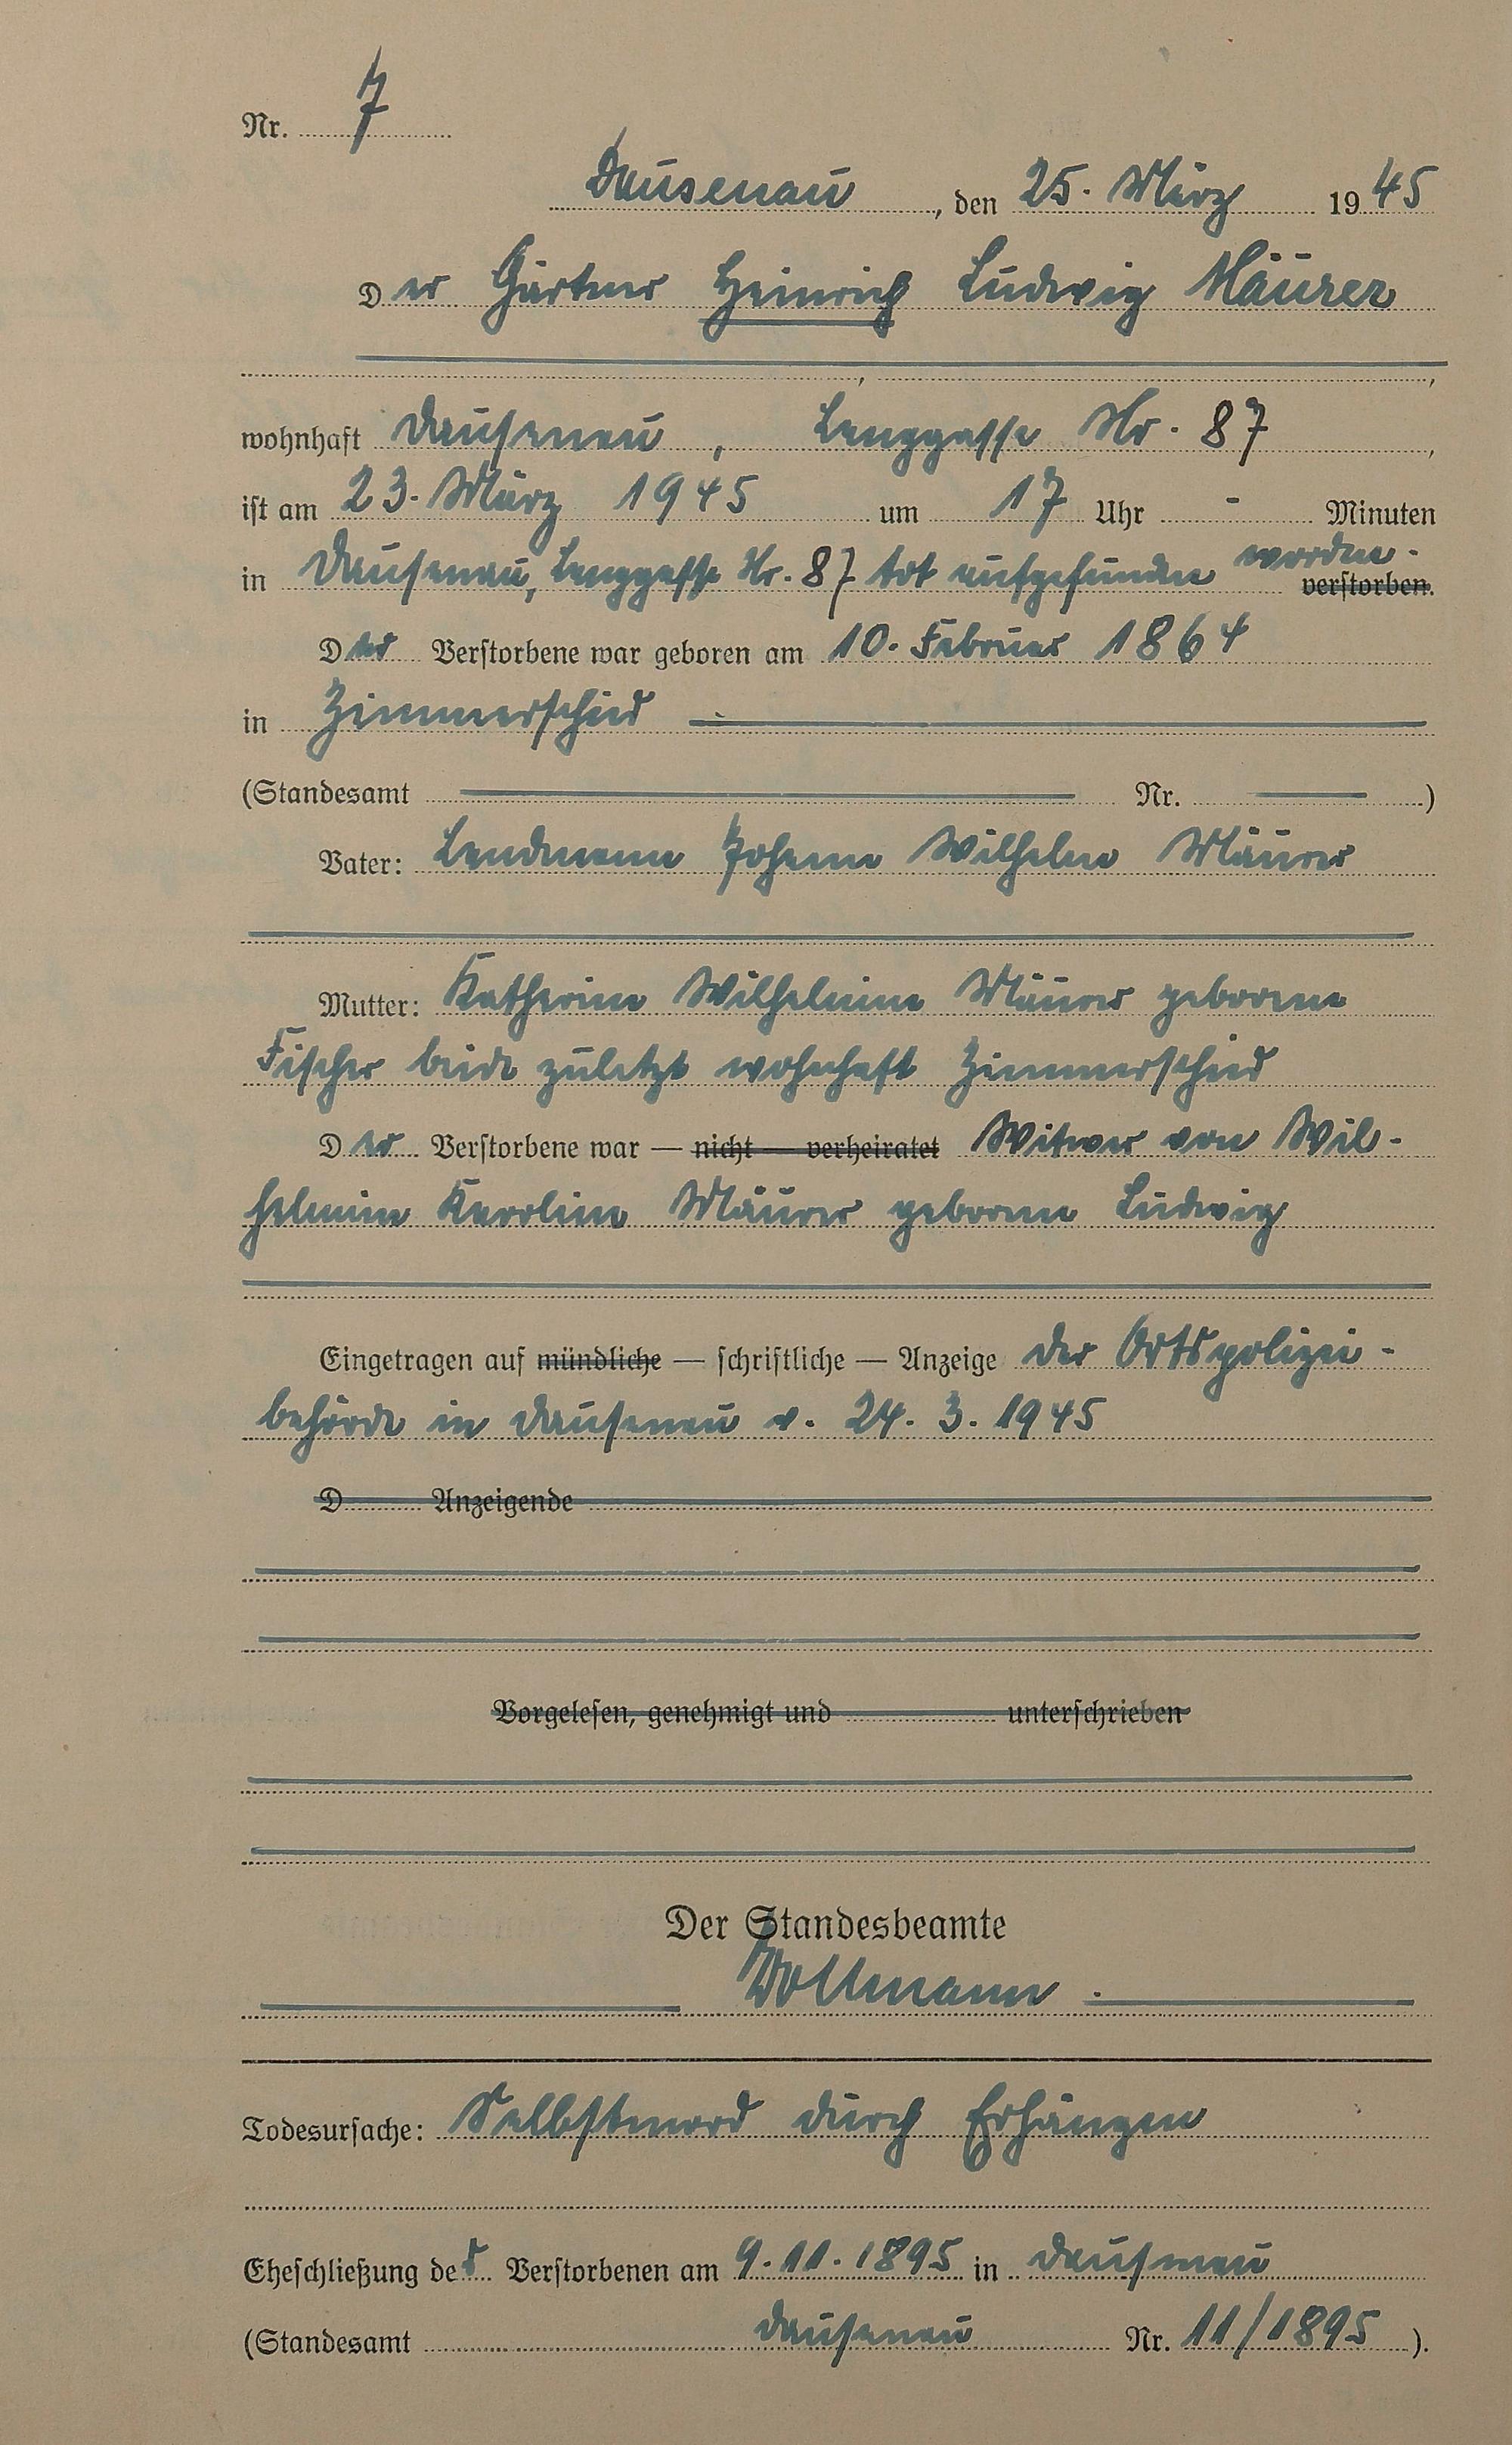 Nr. 7
Dausenau, den 25. März 1945
Der Gärtner Heinrich Ludwig Mäurer
wohnhaft Dausenau, Langgasse Nr. 87,
ist am 23. März 1945 um 17 Uhr - Minuten
in Dausenau, Langgasse Nr. 87 tot aufgefunden worden. verstorben.
Der Verstorbene war geboren am 10. Februar 1864
in Zimmerschied
(Standesamt Nr. )
Vater: Landmann Johann Wilhelm Mäurer
Mutter: Katharine Wilhelmine Mäurer geborene
Fischer beide zuletzt wohnhaft Zimmerschied
Der Verstorbene war — nicht — verheiratet Witwer von Wil-
helmine Karoline Mäurer geborene Ludwig
Eingetragen auf mündliche — schriftliche — Anzeige der Ortspolizei-
behörde in Dausenau v. 24. 3. 1945
D Anzeigende
Vorgelesen, genehmigt und unterschrieben
Der Standesbeamte
Wollmann
Todesursache: Selbstmord durch Erhängen
Eheschließung des Verstorbenen am 9.11.1895 in Dausenau
(Standesamt Dausenau Nr. 11/1895).